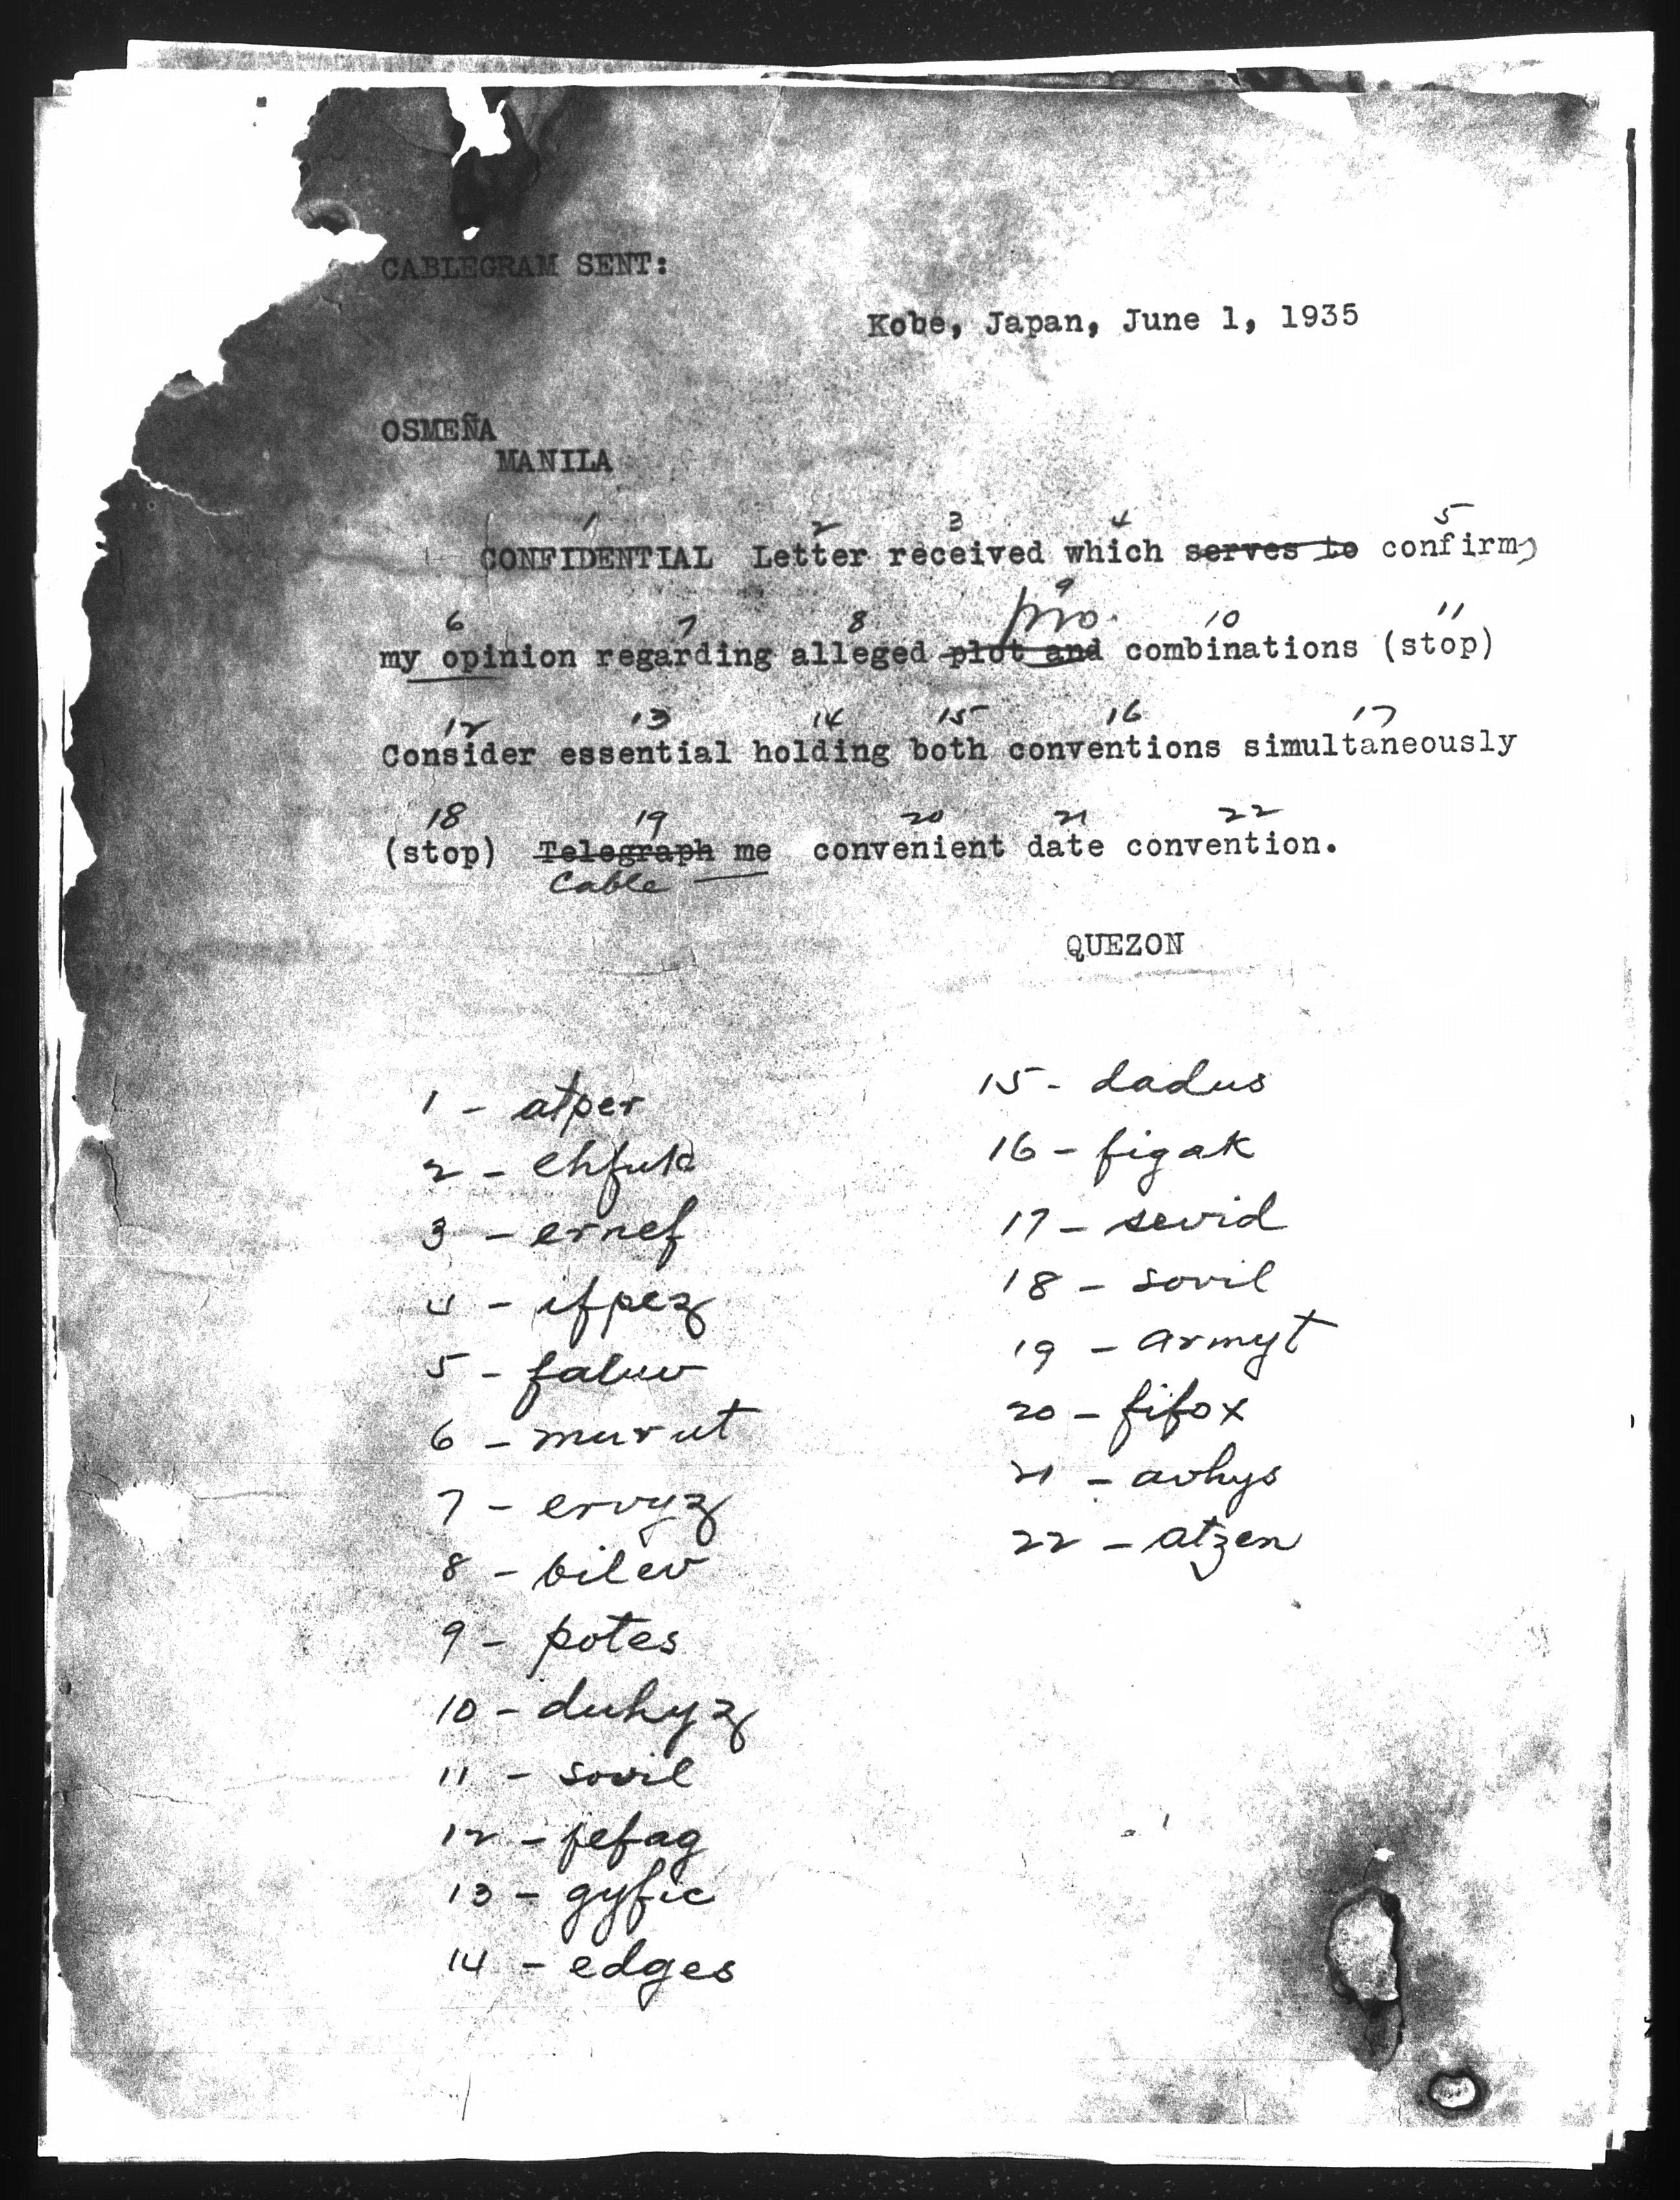 CABLEGRAM SENT:
Kobe, Japan, June 1, 1935
OSMEÑA
MANILA
1 2 3 4 5
CONFIDENTIAL Letter received which serves to confirm
6 7 8 pro. 9 10 11
my opinion regarding alleged plot and combinations (stop)
12 13 14 15 16 17
Consider essential holding both conventions simultaneously
18 19 20 21 22
(stop) Telegraph me convenient date convention.
Cable
QUEZON
1 - atper
2 - ehfuk
3 - ernef
4 - ifpez
5 - faluw
6 - murut
7 - ervyz
8 - bilev
9 - potes
10 - duhyz
11 - sovil
12 - jefag
13 - gyfic
14 - edges
15 - dadus
16 - figak
17 - sevid
18 - sovil
19 - armyt
20 - fifox
21 - avhys
22 - atzen